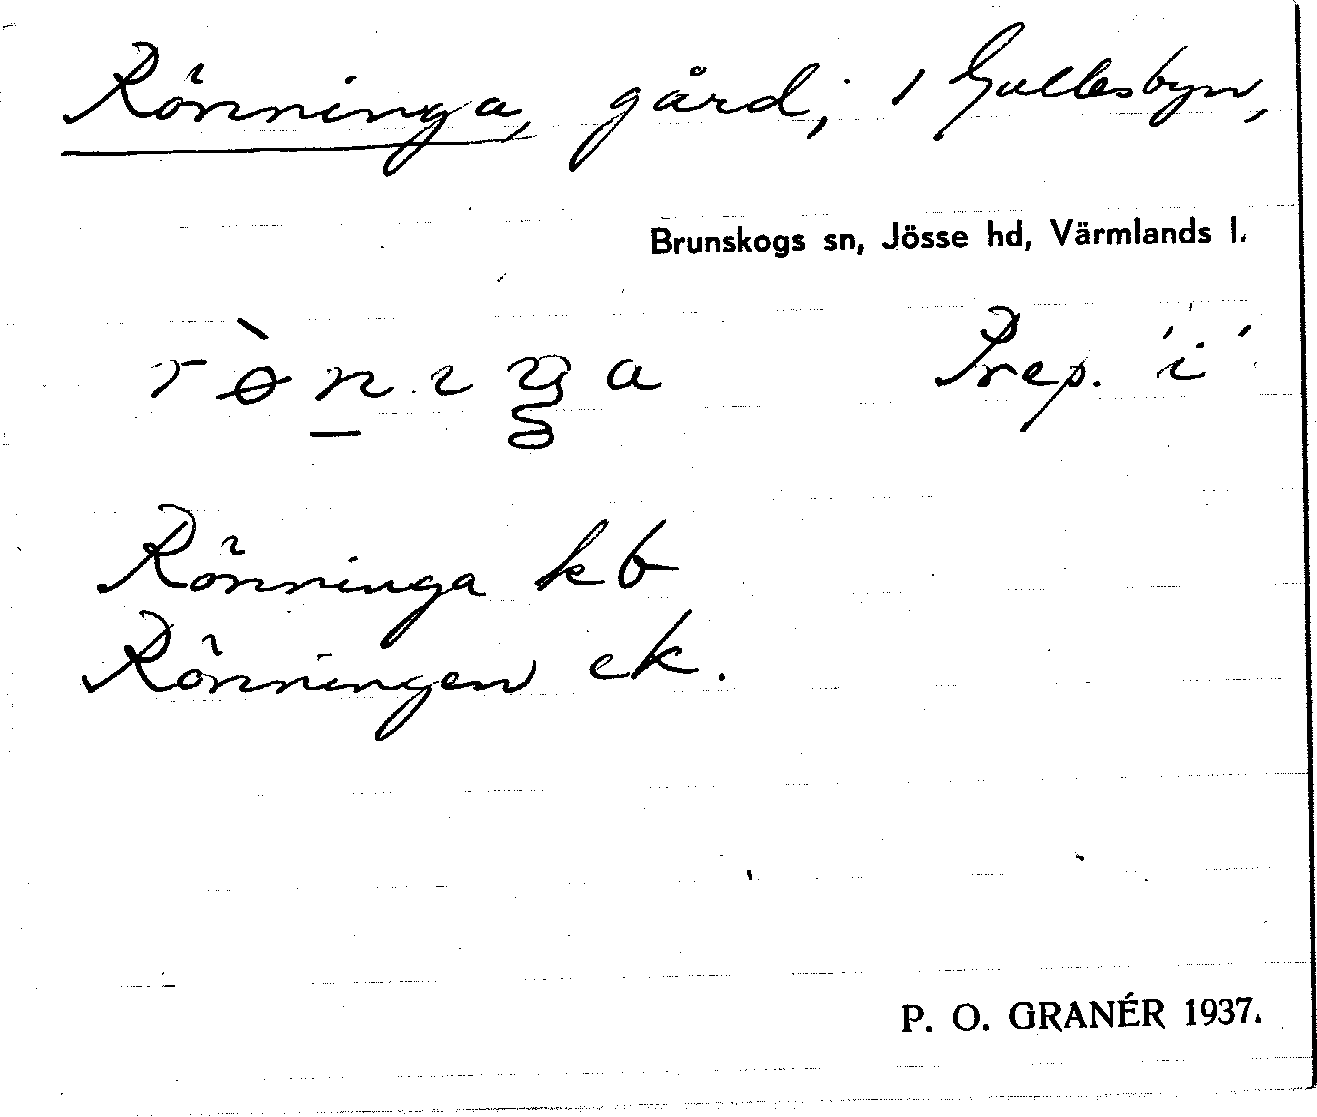 Rönninga, gård, i Gullesbyn,
Brunskogs sn, Jösse hd, Värmlands l.
rø̀n̠ɪŋa Prep. 'i'
Rönninga kb
Rönningen ek.
P. O. GRANÉR 1937.